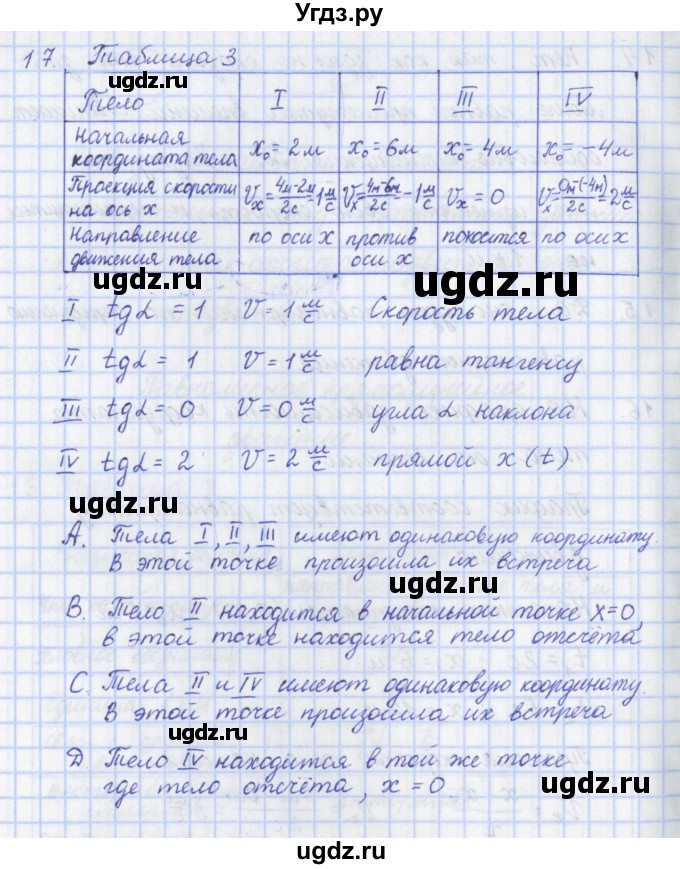 Угдз.ру
17 Таблица 3
Тело I II III IV
Начальная координата тела x₀=2м x₀=6м x₀=4м x₀=-4м
Проекция скорости на ось x Vx=4м-2м/2с=1м/с Vx=4м-6м/2с=-1м/с Vx=0 Vx=0м-(-4м)/2с=2м/с
Направление движения тела по оси x против оси x покоится по оси x
ugdz.ru
ugdz.ru
I tgα=1 V=1 м/с Скорость тела
II tgα=1 V=1 м/с равна тангенсу
III tgα=0 V=0 м/с угла α наклона
IV tgα=2 V=2 м/с прямой x(t)
ugdz.ru
ugdz.ru
A. Тела I, II, III имеют одинаковую координату.
В этой точке произошла их встреча
ugdz.ru
B. Тело II находится в начальной точке x=0,
в этой точке находится тело отсчёта
ugdz.ru
C. Тела II и IV имеют одинаковую координату.
В этой точке произошла их встреча
ugdz.ru
D. Тело IV находится в той же точке
где тело отсчёта, x=0
ugdz.ru
ugdz.ru
ugdz.ru